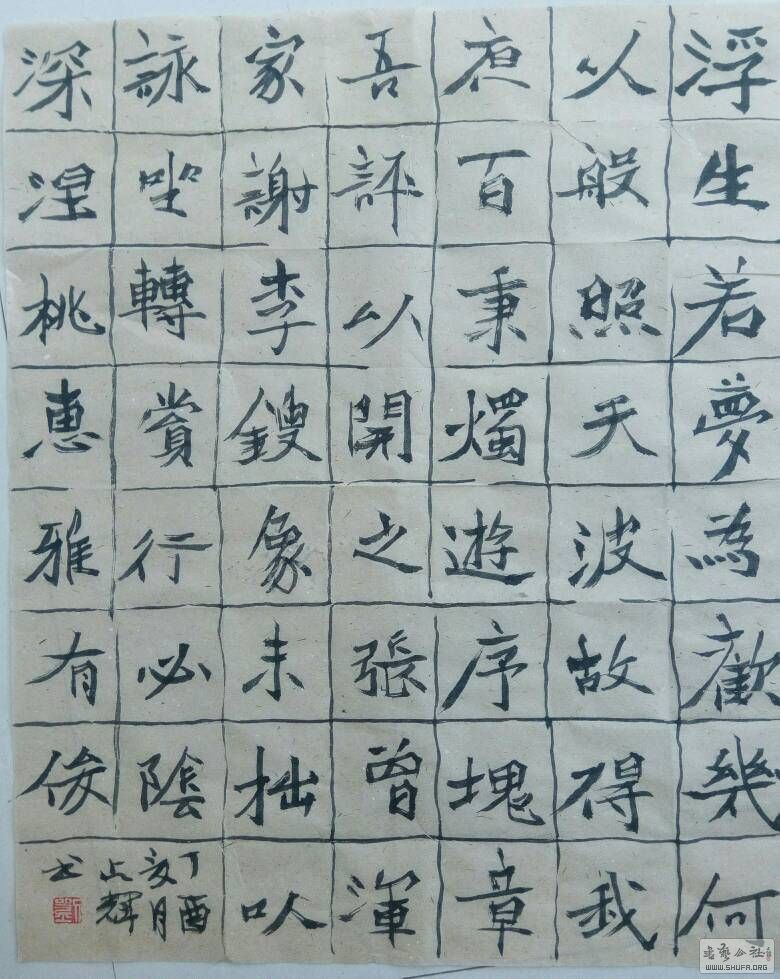 浮生若夢為歡幾何
以般照天波故得我
夜百秉燭遊序塊章
吾評以開之張曾渾
家謝李鎪象未拙以
詠坐轉賞行必陰
深涅桃惠雅有俊
丁酉
月
輝
书
書藝公社
WWW.SHUFA.ORG